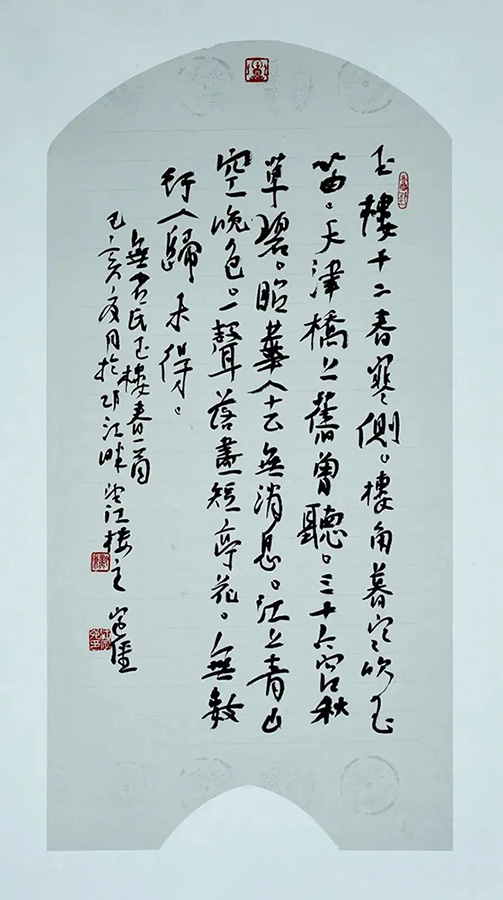 玉樓十二春寒側。樓角暮寒吹玉
笛。天津橋上舊曾聽。三十六宮秋
草碧。昭華人去無消息。江上青山
空晚色。一聲落盡短亭花。無數
行人歸未得。
無名氏玉樓春一首
己亥夏月於江畔望江樓主